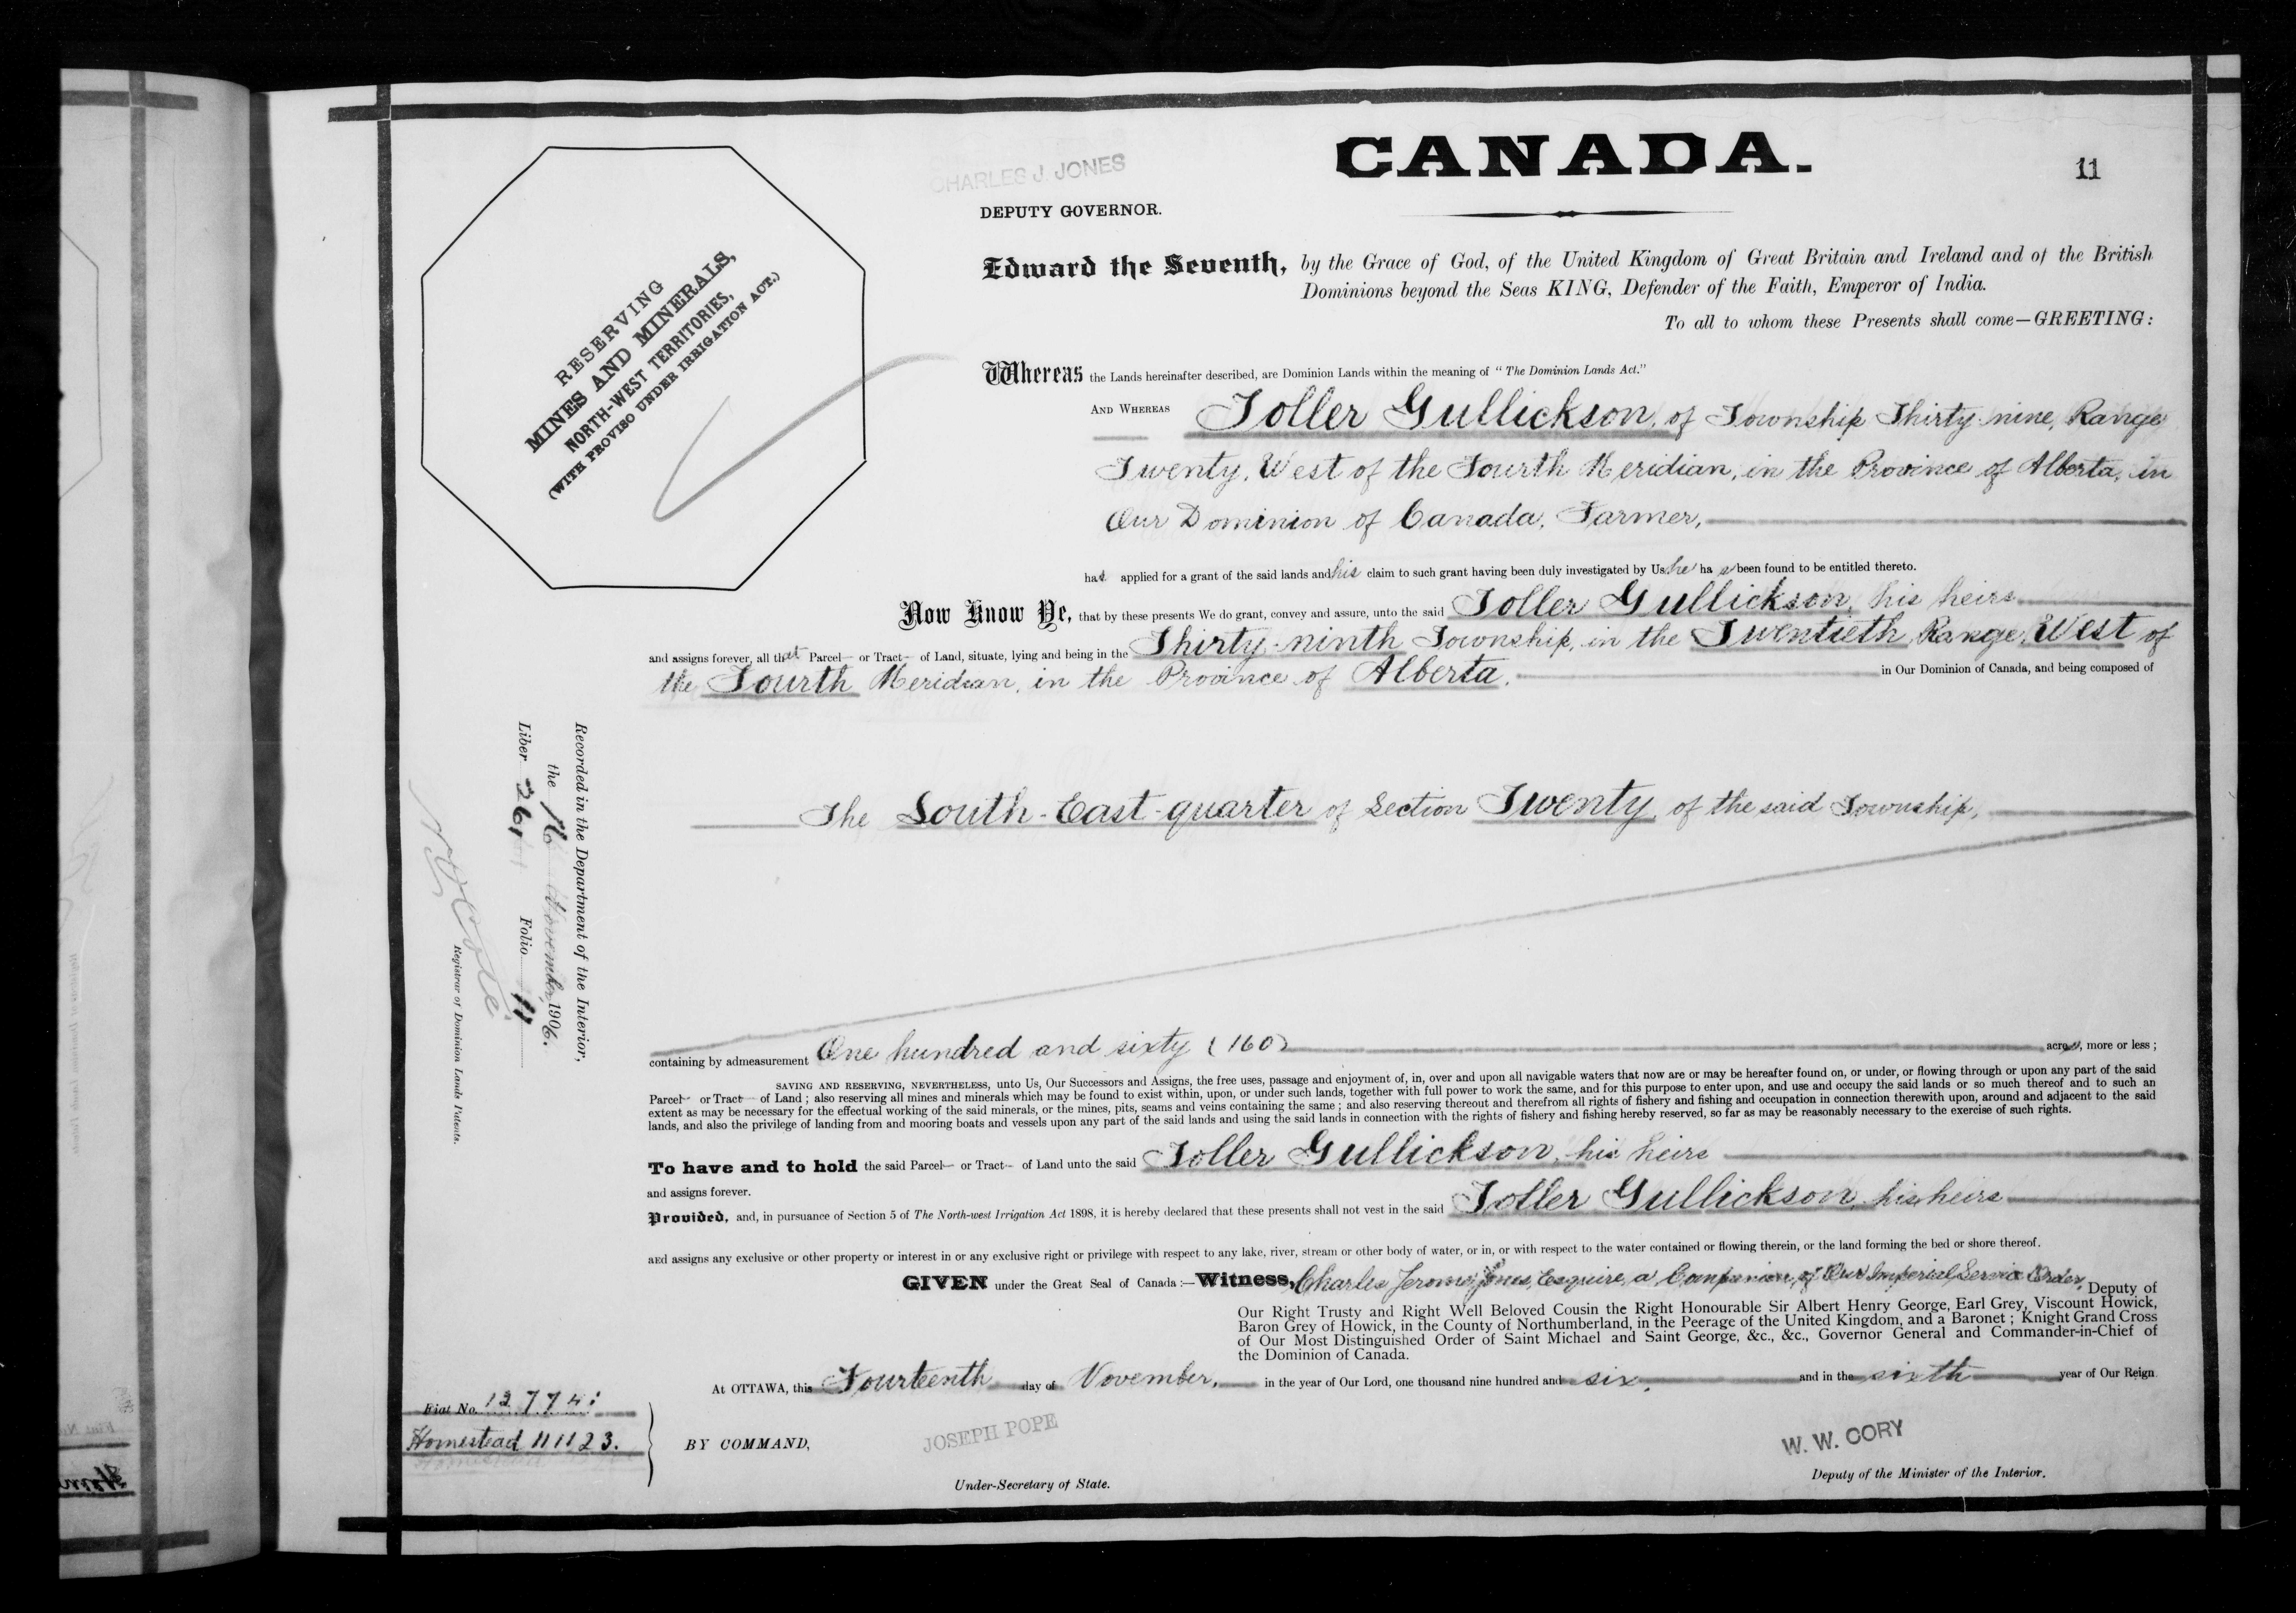 CANADA.
11
CHARLES J. JONES
DEPUTY GOVERNOR.
RESERVING
MINES AND MINERALS,
NORTH-WEST TERRITORIES,
(WITH PROVISO UNDER IRRIGATION ACT.)
Edward the Seventh, by the Grace of God, of the United Kingdom of Great Britain and Ireland and of the British
Dominions beyond the Seas KING, Defender of the Faith, Emperor of India.
To all to whom these Presents shall come—GREETING:
Whereas the Lands hereinafter described, are Dominion Lands within the meaning of "The Dominion Lands Act."
AND WHEREAS Toller Gullickson, of Township Thirty-nine, Range
Twenty, West of the Fourth Meridian, in the Province of Alberta, in
Our Dominion of Canada, Farmer,
has applied for a grant of the said lands and his claim to such grant having been duly investigated by Us he has been found to be entitled thereto.
Now Know Ye, that by these presents We do grant, convey and assure, unto the said Toller Gullickson, his heirs
and assigns forever, all that Parcel or Tract of Land, situate, lying and being in the Thirty-ninth Township, in the Twentieth Range, West of
the Fourth Meridian, in the Province of Alberta, in Our Dominion of Canada, and being composed of
The South-East-quarter of Section Twenty, of the said Township,
containing by admeasurement One hundred and sixty (160) acres, more or less;
SAVING AND RESERVING, NEVERTHELESS, unto Us, Our Successors and Assigns, the free uses, passage and enjoyment of, in, over and upon all navigable waters that now are or may be hereafter found on, or under, or flowing through or upon any part of the said
Parcel or Tract of Land; also reserving all mines and minerals which may be found to exist within, upon, or under such lands, together with full power to work the same, and for this purpose to enter upon, and use and occupy the said lands or so much thereof and to such an
extent as may be necessary for the effectual working of the said minerals, or the mines, pits, seams and veins containing the same; and also reserving thereout and therefrom all rights of fishery and fishing and occupation in connection therewith upon, around and adjacent to the said
lands, and also the privilege of landing from and mooring boats and vessels upon any part of the said lands and using the said lands in connection with the rights of fishery and fishing hereby reserved, so far as may be reasonably necessary to the exercise of such rights.
To have and to hold the said Parcel or Tract of Land unto the said Toller Gullickson, his heirs
and assigns forever.
Provided, and, in pursuance of Section 5 of The North-west Irrigation Act 1898, it is hereby declared that these presents shall not vest in the said Toller Gullickson, his heirs
and assigns any exclusive or other property or interest in or any exclusive right or privilege with respect to any lake, river, stream or other body of water, or in, or with respect to the water contained or flowing therein, or the land forming the bed or shore thereof.
GIVEN under the Great Seal of Canada:—Witness, Charles Jerome Jones, Esquire, a Companion of Our Imperial Service Order, Deputy of
Our Right Trusty and Right Well Beloved Cousin the Right Honourable Sir Albert Henry George, Earl Grey, Viscount Howick,
Baron Grey of Howick, in the County of Northumberland, in the Peerage of the United Kingdom, and a Baronet; Knight Grand Cross
of Our Most Distinguished Order of Saint Michael and Saint George, &c., &c., Governor General and Commander-in-Chief of
the Dominion of Canada.
At OTTAWA, this Fourteenth day of November, in the year of Our Lord, one thousand nine hundred and six, and in the sixth year of Our Reign
BY COMMAND,
JOSEPH POPE
Under-Secretary of State.
W. W. CORY
Deputy of the Minister of the Interior.
Fiat No. 12774:
Homestead 11123.
Recorded in the Department of the Interior,
the 16 November 1906.
Liber 261 Folio 11
Registrar of Dominion Lands Patents.